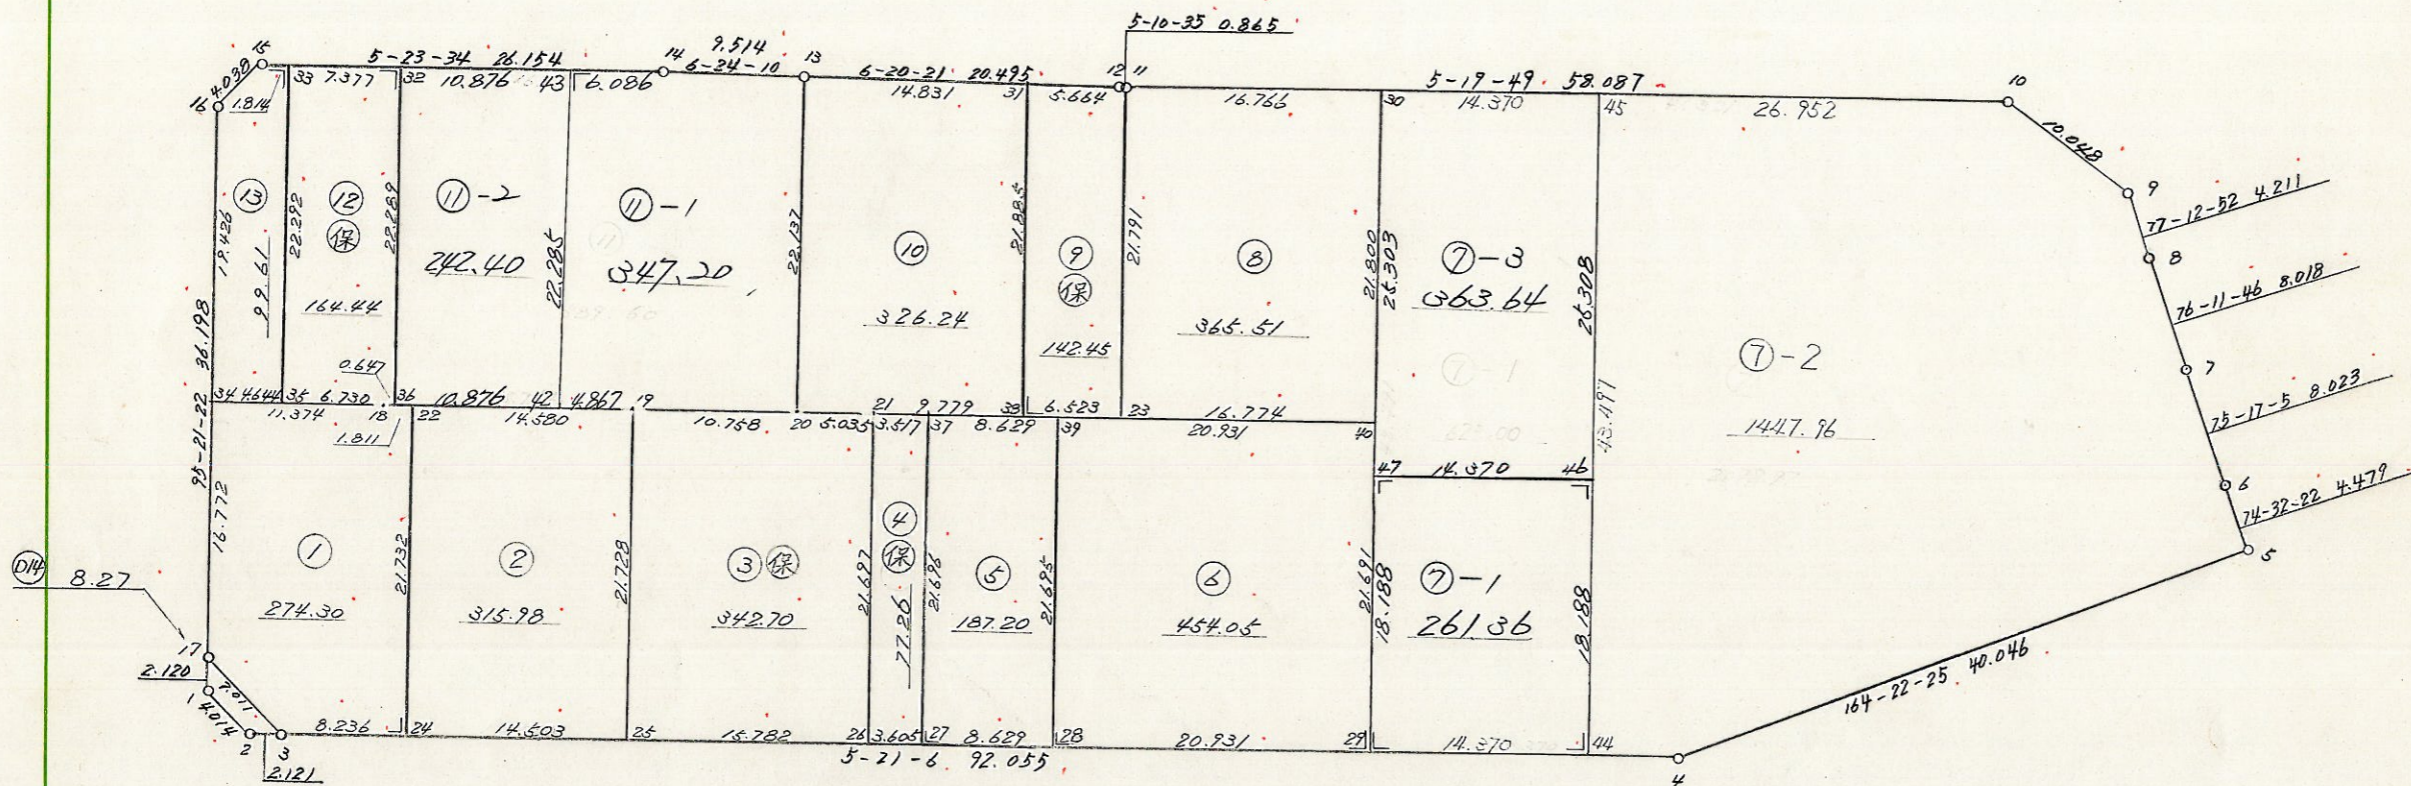 5-10-35 0.865
15 5-23-34 26.154 14 9.514 13
6-24-10 6-20-21 20.495 12 11 5-19-49 58.087 10
4.038 33 7.377 32 10.876 43 6.086 14.831 31 5.664 16.766 30 14.370 45 26.952
16 1.814
10.048
9
77-12-52 4.211
8
76-11-46 8.018
7
75-17-5 8.023
6
74-32-22 4.479
5
164-22-25 40.046
4
19.426 ⑬ 99.61 22.292
⑫ 保 164.44 22.289
⑪-2 242.40 22.285
⑪-1 347.20 22.137
⑩ 326.24 21.885
⑨ 保 142.45 21.791
⑧ 365.51 21.800 25.303
⑦-3 363.64 25.308
⑦-2 1447.96 43.497
95-21-22 36.198
0.647
34 4.644 35 6.730 36 10.876 42 4.867 19
11.374 18 22 14.580 10.758 20 5.035 21 9.779 38 6.523 23 16.774
1.811 3.517 37 8.629 39 20.931 40
47 14.370 46
16.772 ① 274.30 21.732
② 315.98 21.728
③ 保 342.70 21.697
④ 保 77.26 21.696
⑤ 187.20 21.695
⑥ 454.05 21.691 18.188
⑦-1 261.36 18.188
D14 8.27
17
2.120 7.011
1 4.014
2 3 8.236 24 14.503 25 15.782 26 3.605 27 8.629 28 20.931 29 14.370 44
2.121
5-21-6 92.055